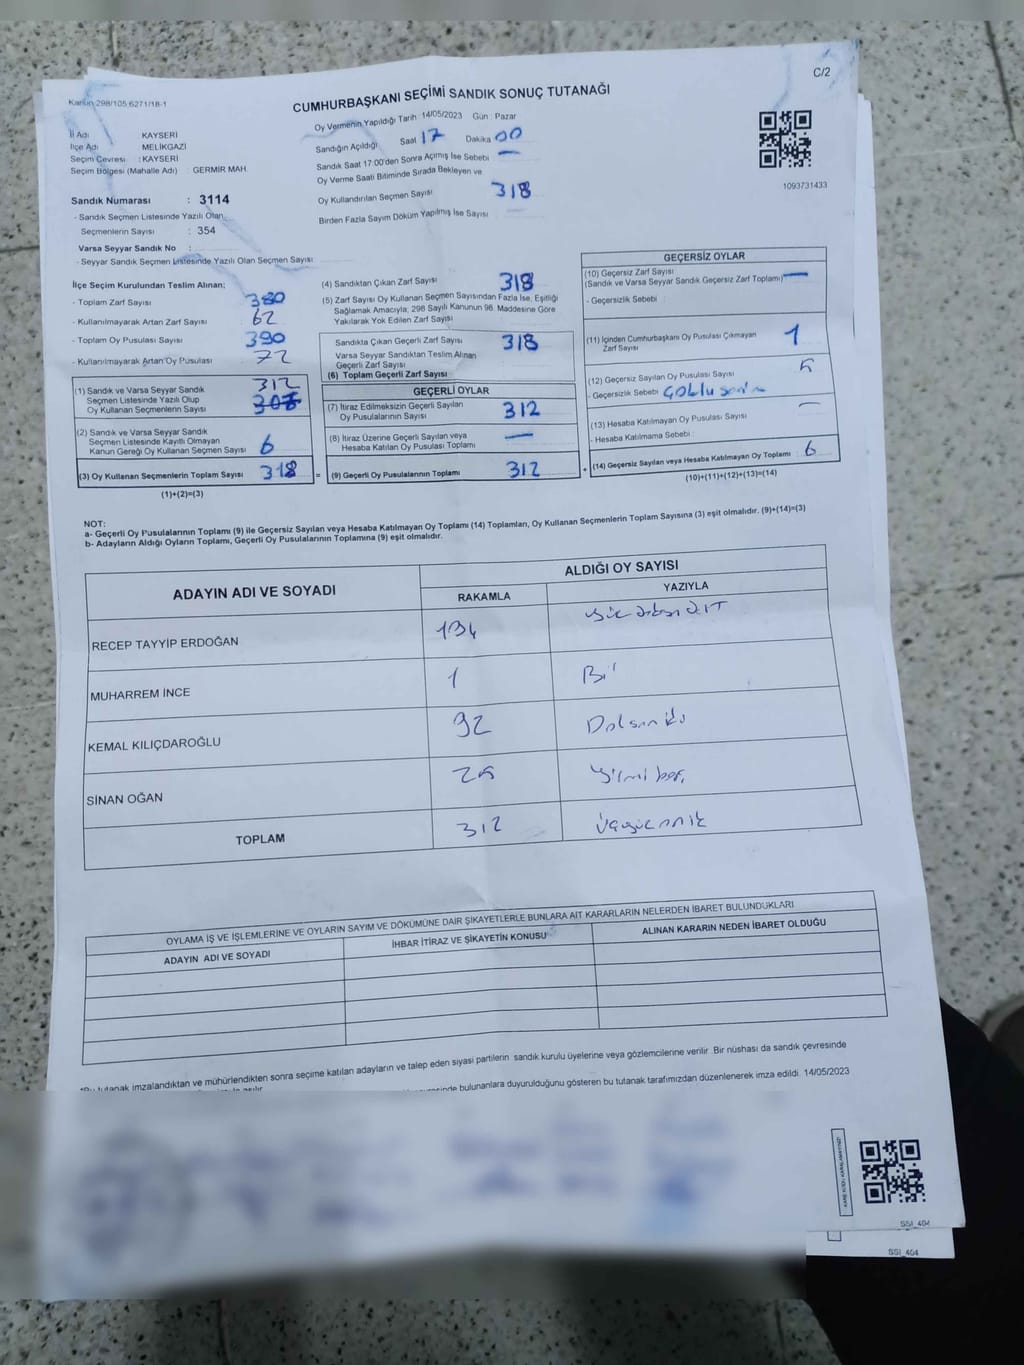 C/2
Kanun 298/105,6271/18-1
CUMHURBAŞKANI SEÇİMİ SANDIK SONUÇ TUTANAĞI
İl Adı KAYSERİ
İlçe Adı MELİKGAZİ
Seçim Çevresi : KAYSERİ
Seçim Bölgesi (Mahalle Adı) : GERMİR MAH.
Sandık Numarası : 3114
- Sandık Seçmen Listesinde Yazılı Olan
Seçmenlerin Sayısı : 354
Varsa Seyyar Sandık No :
- Seyyar Sandık Seçmen Listesinde Yazılı Olan Seçmen Sayısı
Oy Vermenin Yapıldığı Tarih : 14/05/2023 Gün : Pazar
Sandığın Açıldığı Saat 17 Dakika 00
Sandık Saat 17:00'den Sonra Açılmış İse Sebebi —
Oy Verme Saati Bitiminde Sırada Bekleyen ve
Oy Kullandırılan Seçmen Sayısı 318
Birden Fazla Sayım Döküm Yapılmış İse Sayısı
1093731433
İlçe Seçim Kurulundan Teslim Alınan:
- Toplam Zarf Sayısı 380
- Kullanılmayarak Artan Zarf Sayısı 62
- Toplam Oy Pusulası Sayısı 390
- Kullanılmayarak Artan Oy Pusulası 72
(1) Sandık ve Varsa Seyyar Sandık
Seçmen Listesinde Yazılı Olup
Oy Kullanan Seçmenlerin Sayısı 312
(2) Sandık ve Varsa Seyyar Sandık
Seçmen Listesinde Kayıtlı Olmayan
Kanun Gereği Oy Kullanan Seçmen Sayısı 6
(3) Oy Kullanan Seçmenlerin Toplam Sayısı 318
(1)+(2)=(3)
(4) Sandıktan Çıkan Zarf Sayısı 318
(5) Zarf Sayısı Oy Kullanan Seçmen Sayısından Fazla İse, Eşitliği
Sağlamak Amacıyla; 298 Sayılı Kanunun 98. Maddesine Göre
Yakılarak Yok Edilen Zarf Sayısı
Sandıkta Çıkan Geçerli Zarf Sayısı 318
Varsa Seyyar Sandıktan Teslim Alınan
Geçerli Zarf Sayısı
(6) Toplam Geçerli Zarf Sayısı
GEÇERLİ OYLAR
(7) İtiraz Edilmeksizin Geçerli Sayılan
Oy Pusulalarının Sayısı 312
(8) İtiraz Üzerine Geçerli Sayılan veya
Hesaba Katılan Oy Pusulası Toplamı —
= (9) Geçerli Oy Pusulalarının Toplamı 312
GEÇERSİZ OYLAR
(10) Geçersiz Zarf Sayısı
(Sandık ve Varsa Seyyar Sandık Geçersiz Zarf Toplamı) —
- Geçersizlik Sebebi :
(11) İçinden Cumhurbaşkanı Oy Pusulası Çıkmayan
Zarf Sayısı 1
(12) Geçersiz Sayılan Oy Pusulası Sayısı 5
- Geçersizlik Sebebi
(13) Hesaba Katılmayan Oy Pusulası Sayısı —
- Hesaba Katılmama Sebebi :
+ (14) Geçersiz Sayılan veya Hesaba Katılmayan Oy Toplamı 6
(10)+(11)+(12)+(13)=(14)
NOT:
a- Geçerli Oy Pusulalarının Toplamı (9) ile Geçersiz Sayılan veya Hesaba Katılmayan Oy Toplamı (14) Toplamları, Oy Kullanan Seçmenlerin Toplam Sayısına (3) eşit olmalıdır. (9)+(14)=(3)
b- Adayların Aldığı Oyların Toplamı, Geçerli Oy Pusulalarının Toplamına (9) eşit olmalıdır.
ADAYIN ADI VE SOYADI
ALDIĞI OY SAYISI
RAKAMLA YAZIYLA
RECEP TAYYİP ERDOĞAN 194
MUHARREM İNCE 1 Bir
KEMAL KILIÇDAROĞLU 92 Doksan iki
SİNAN OĞAN 25 Yirmi beş
TOPLAM 312
OYLAMA İŞ VE İŞLEMLERİNE VE OYLARIN SAYIM VE DÖKÜMÜNE DAİR ŞİKAYETLERLE BUNLARA AİT KARARLARIN NELERDEN İBARET BULUNDUKLARI
ADAYIN ADI VE SOYADI İHBAR İTİRAZ VE ŞİKAYETİN KONUSU ALINAN KARARIN NEDEN İBARET OLDUĞU
*Bu tutanak imzalandıktan ve mühürlendikten sonra seçime katılan adayların ve talep eden siyasi partilerin sandık kurulu üyelerine veya gözlemcilerine verilir. Bir nüshası da sandık çevresinde
bulunanlara duyurulduğunu gösteren bu tutanak tarafımızdan düzenlenerek imza edildi. 14/05/2023
KARE KODU KARALAMAYINIZ!
SSI_404
SSI_404